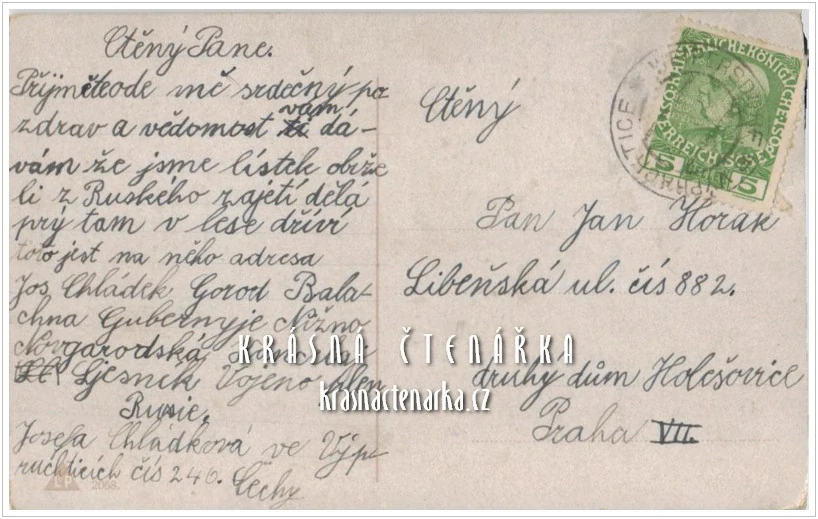 Ctěný Pane.
Přijměteode mě srdečný po
zdrav a vědomost vám dá-
vám že jsme lístek obrže
li z Ruského zajetí dělá
prý tam v lese dříví
toto jest na něho adresa
Jos Chládek Gorod Bala-
chna Gubernyje Nižno
Novgarodská
Ljesník Vojeno plen
Rusie.
Josefa Chládková ve Výp-
ruchticích čís 246.
Čechy
Ctěný
Pan Jan Horak
Libeňská ul. čís 882.
druhy dům Holešovice
Praha VII.
5 5
KRÁSNÁ ČTENÁŘKA
krasnactenarka.cz
LP
2068.